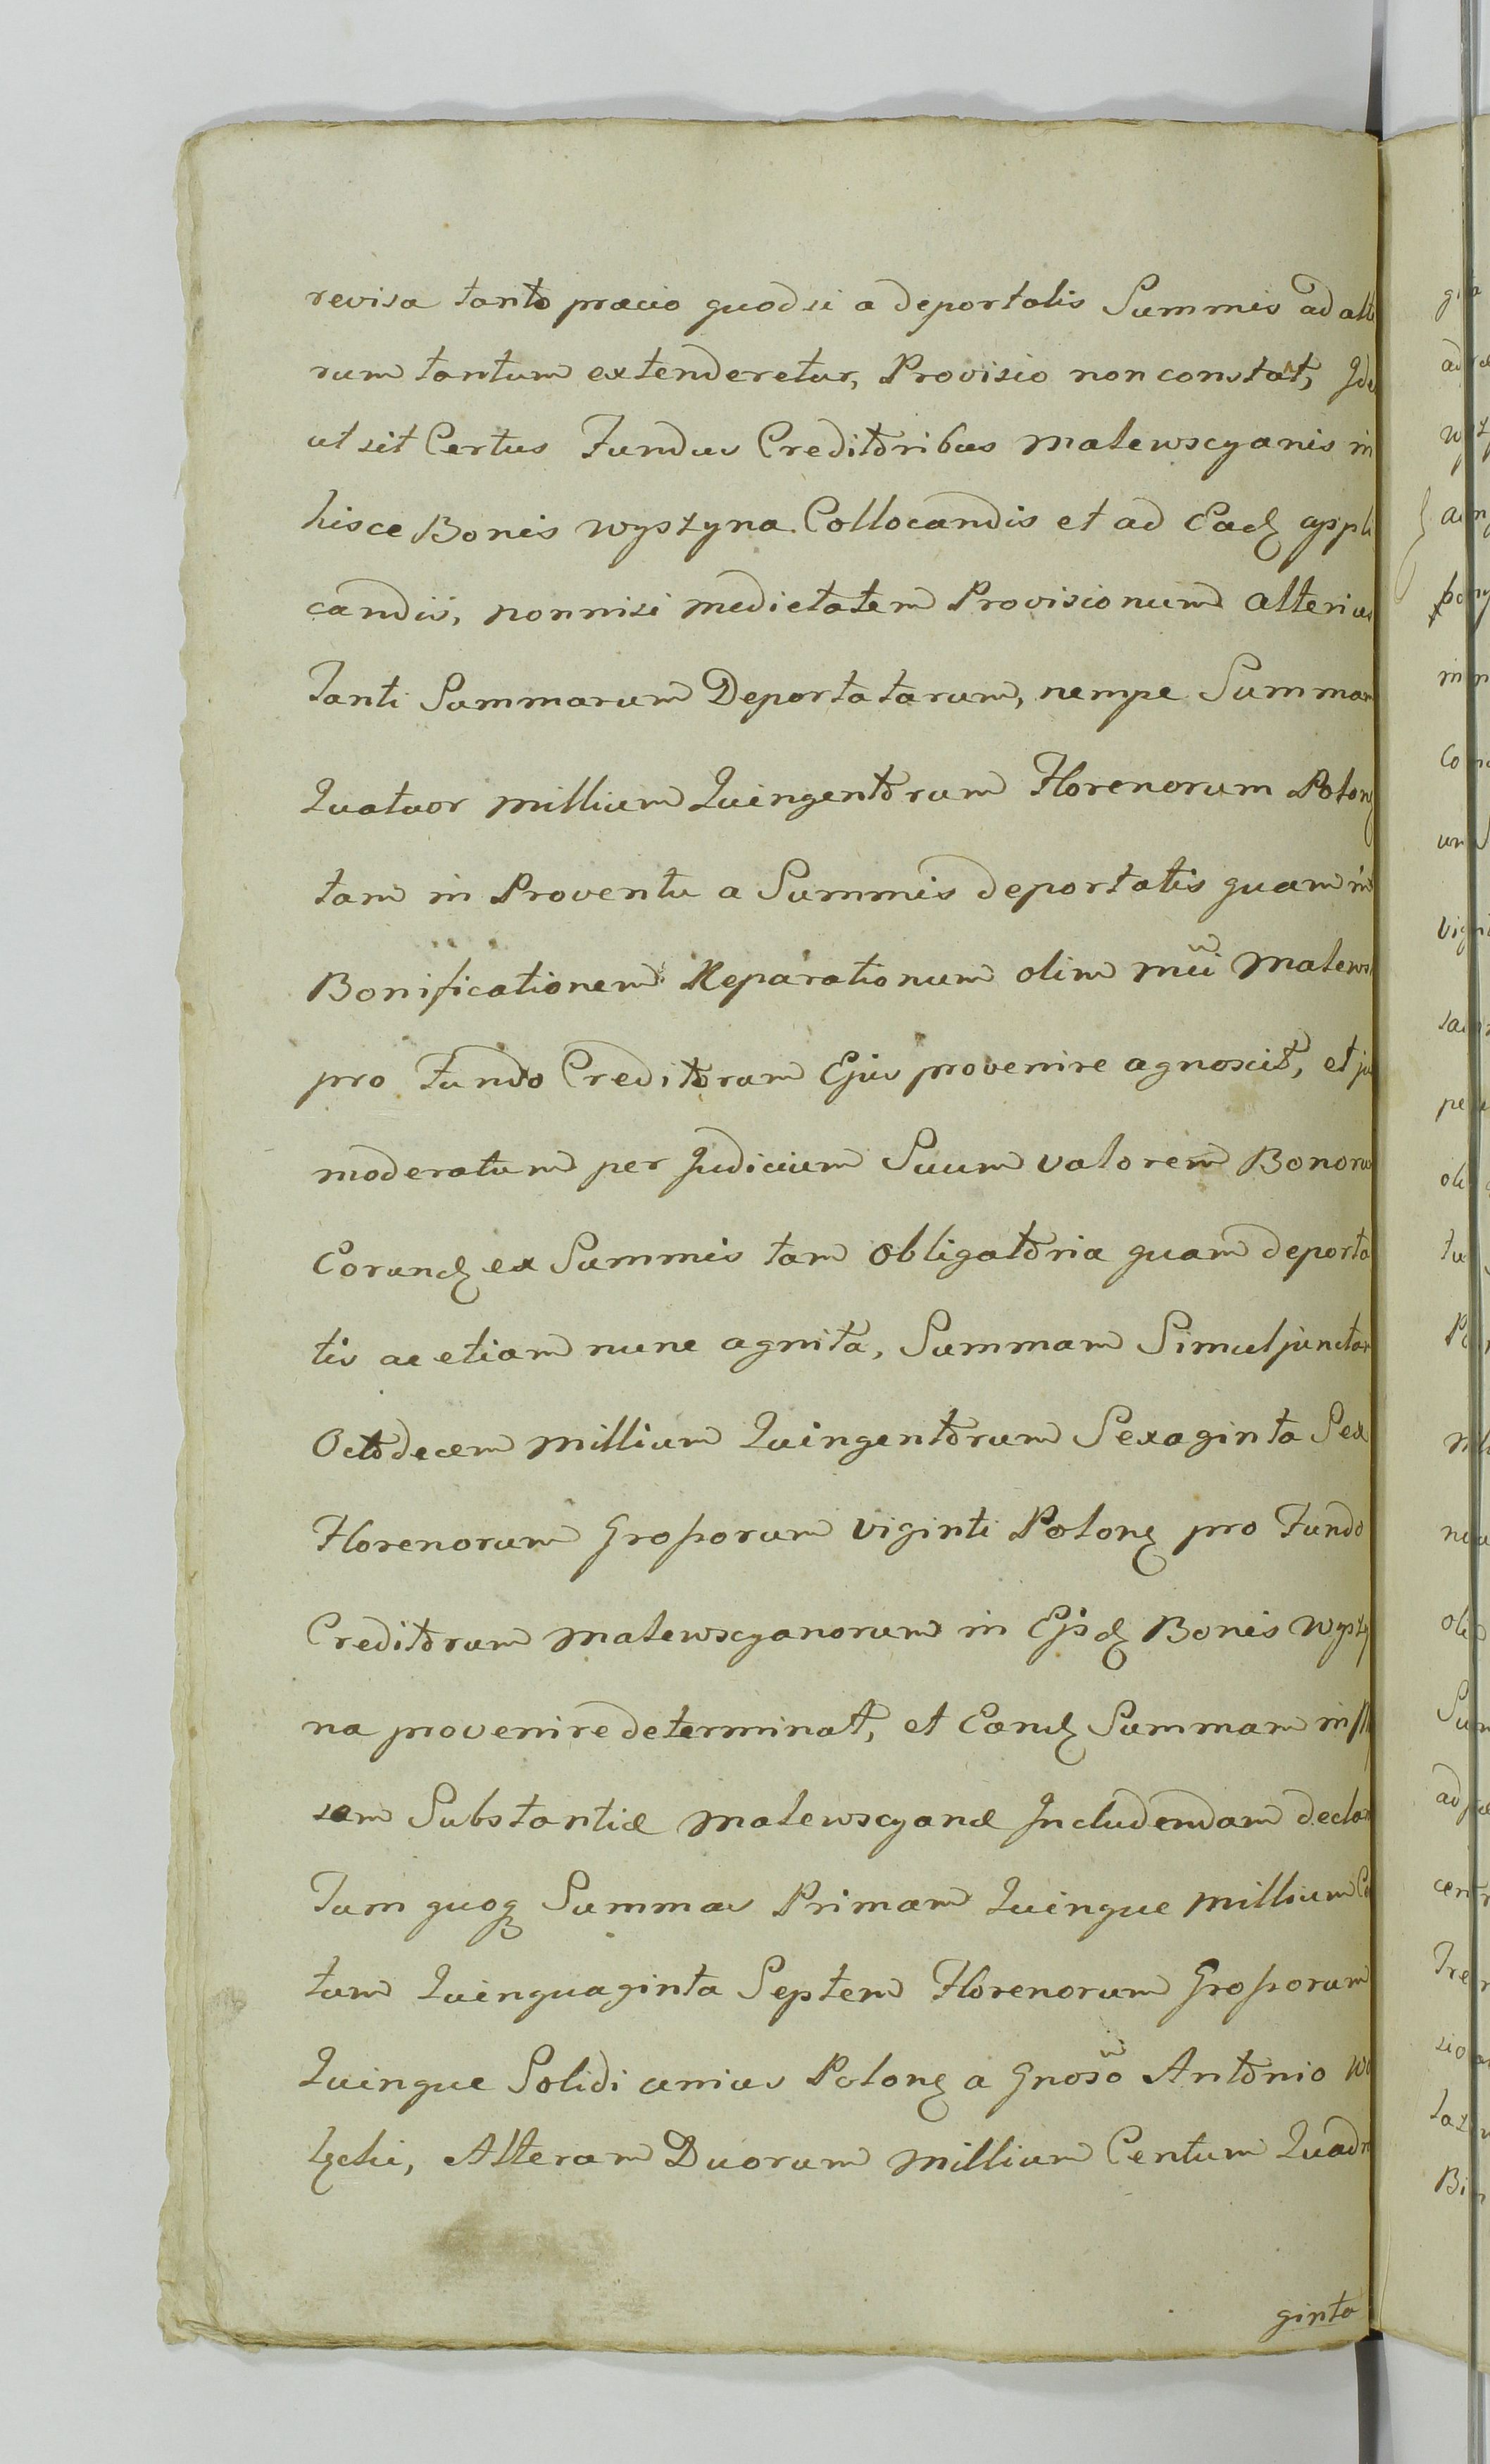 revisa tanto præcio quodsi a deportatis Summis ad alte
rum tantum extenderetur, Provisio non constat,
ut sit Certus Fundus Creditoribus Malewscyanis in
hisce Bonis Wyszyna Collocandis et ad Eadꝫ appli
candis, nonnisi medietatem Provisionum alterius
tanti Summarum Deportatarum, nempe Summam
Quatuor millium Quingentorum Florenorum Polonꝫ
tam in Proventu a Summis deportatis quam in
Bonificationem Reparationum olim Mci Malews
pro Fundo Creditorum Ejus provenire agnoscit, et
moderatum per Judicium Suum valorem Bonorum
Eorundꝫ ex Summis tam obligatoria quam deporta
tis ac etiam nunc agnita, Summam Simul junctam
Octodecem millium Quingentorum Sexaginta Sex
Florenorum Grossorum viginti Polonꝫ pro Fundo
Creditorum Malewscyanorum in Ejsdꝫ Bonis Wyszy
na provenire determinat, et Eandꝫ Summam in
sam Substantiæ Malewscyanæ Includendam declar
Tum quoqꝫ Summas Primam Quinque millium
tum Quinquaginta Septem Florenorum Grossorum
Quinque Solidi unius Polonꝫ a Gnoso Antonio
Alteram Duorum millium Centum Quadra
ginta